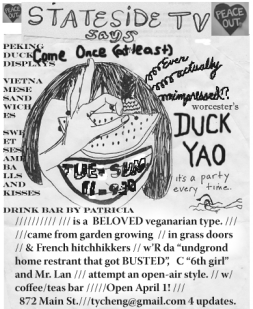 PEACE OUT
STATESIDE TV
PEACE OUT
says
Come Once (at least)
PEKING
DUCK
DISPLAYS
VIETNA
MESE
SAND
WICH
ES
SWE
ET
SES
AME
BA
LLS
AND
KISSES
Ever
actually
impressed?
worcester's
DUCK
YAO
it's a party
every time.
TUE-SUN
11-930
DRINK BAR BY PATRICIA
////////// /// is a BELOVED veganarian type. ///
///came from garden growing // in grass doors
// & French hitchhikkers // w'R da "undgrond
home restrant that got BUSTED", C "6th girl"
and Mr. Lan /// attempt an open-air style. // w/
coffee/teas bar /////Open April 1! ///
872 Main St.///tycheng@gmail.com 4 updates.